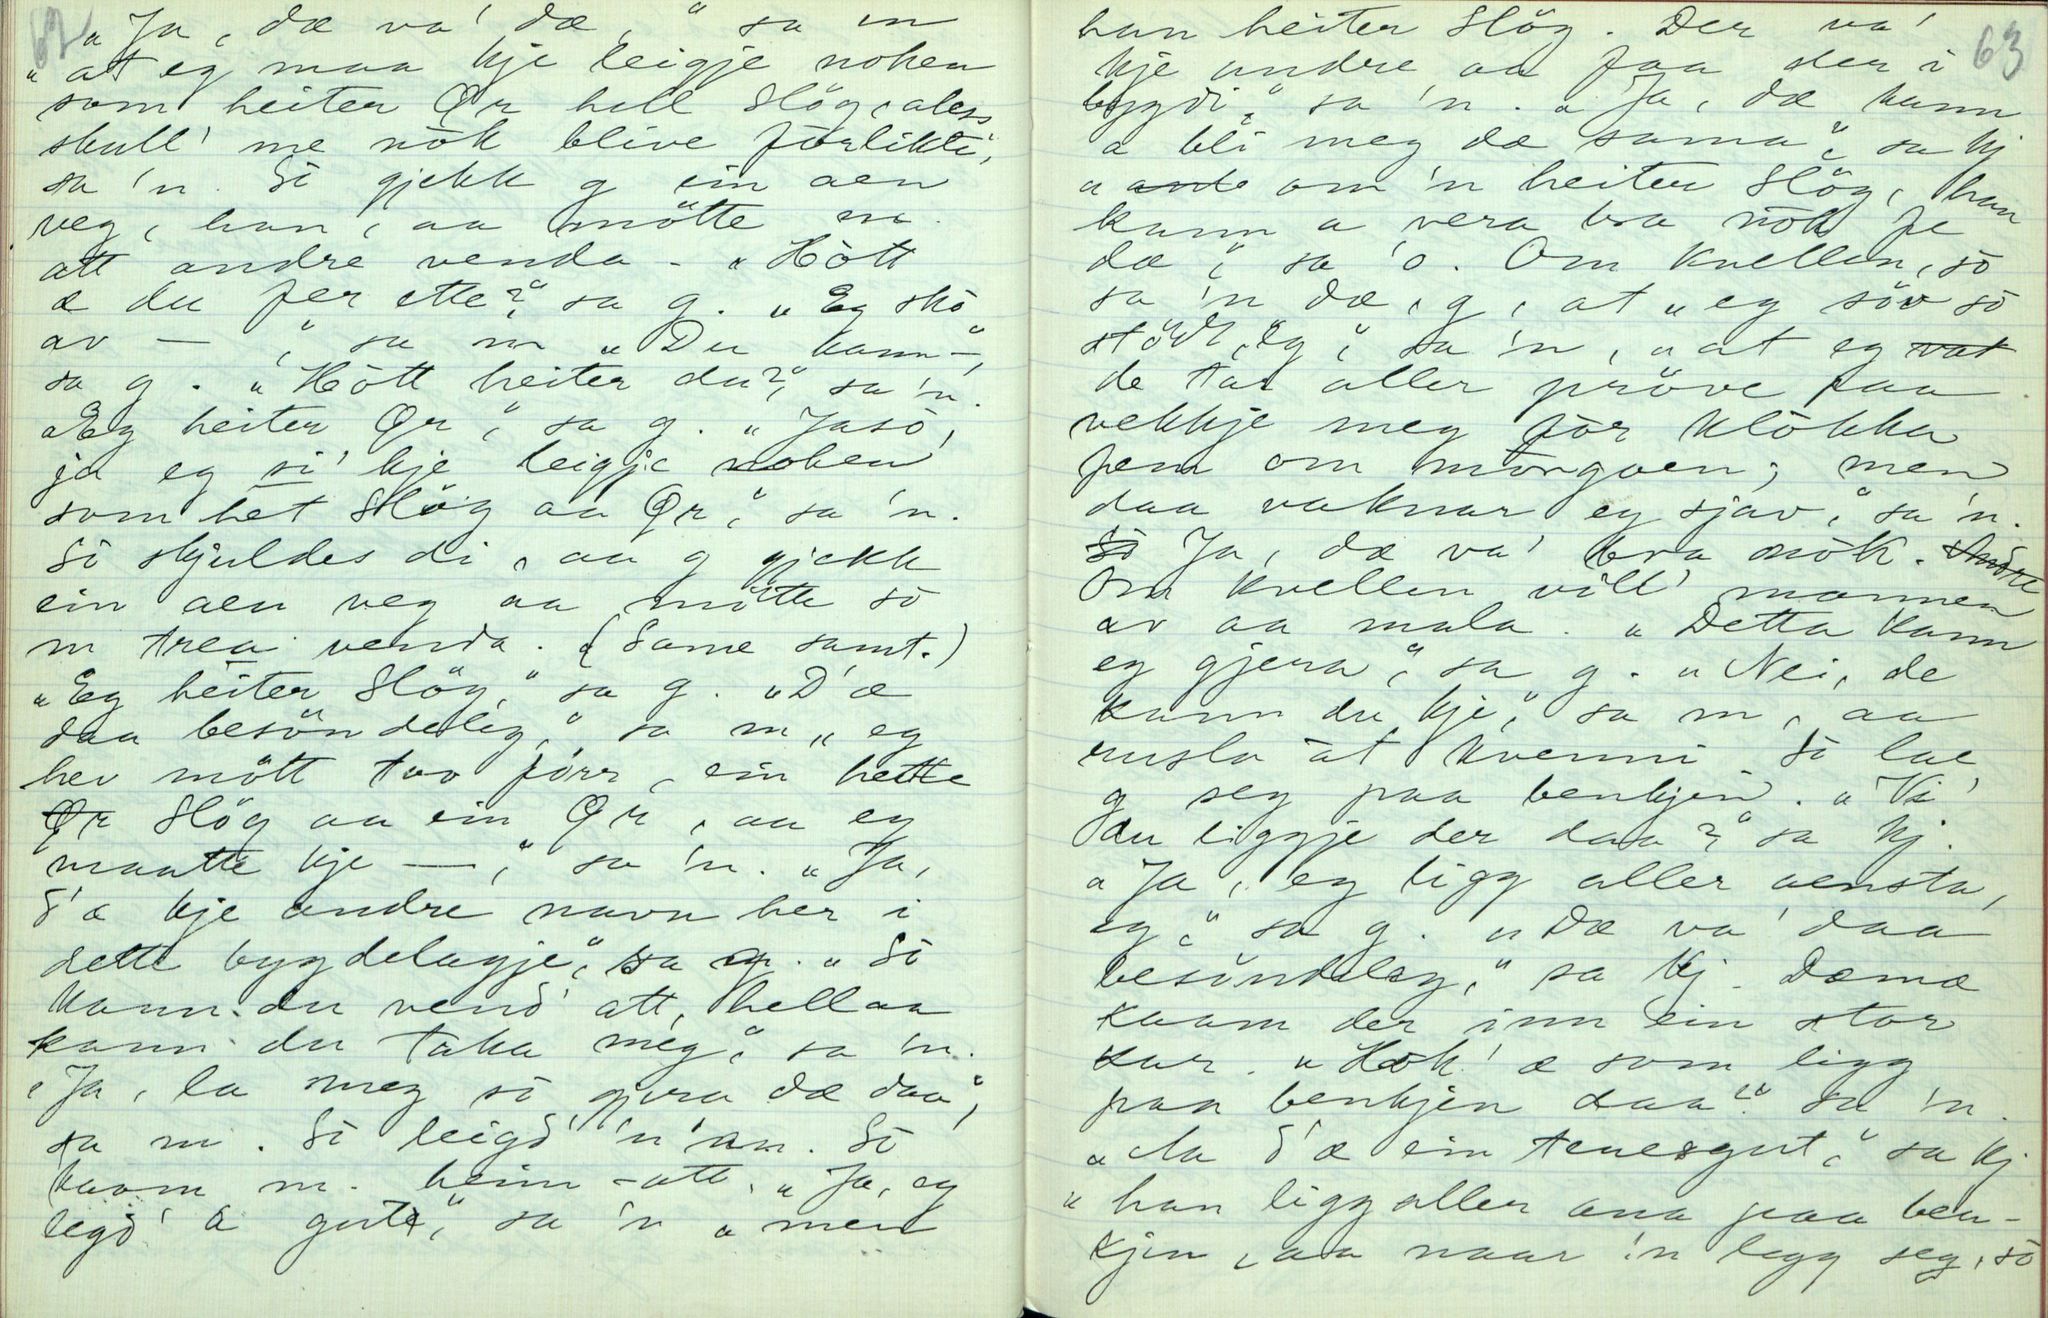 62
„Ja, dæ va' dæ,“ sa 'n
„at eg maa kje leigje noken
som heiter Ør hell Slög, aless
skull' me nòk blive förlikte“,
sa 'n. Sò gjekk g ein aen
veg, han, aa mötte m.
att andre venda. „Hòtt
æ du fer ette?“ sa g. „Eg skò
av —“, sa m „Du kann —“,
sa g. „Hòtt heiter du?“, sa 'n.
„Eg heiter Ør“, sa g. „Jasò,
ja eg vi' kje leigje noken
som het Slög aa Ør,“ sa 'n.
Sò skjuldes di, aa g gjekk
ein aen veg aa mötte sò
m trea venda. (Same samt.)
„Eg heiter Slög,“ sa g. „D'æ
daa besöndeleg,“ sa m „eg
hev mött tvo förr, ein hette
Ør Slög aa ein Ør, aa eg
maatte kje —“, sa 'n. „Ja,
d'æ kje andre navn her i
dette bygdelagje“, sa g. „Sò
kann du vend' att, hell aa
kann du taka meg“, sa 'n.
„Ja, la meg sò gjera dæ daa“,
sa m. Sò leigd' 'n 'an. Sò
kaam m. heim-att. „Ja, eg
legd' ä gut“, sa 'n „men
63
han heiter Slög. Der va'
kje andre aa faa der i
bygdi“, sa 'n. „Ja, dæ kann
a bli meg dæ sama“, sa kj
„ om 'n heiter Slög, han
kann a vera bra nòk fe
dæ“, sa 'o. Om kvellen, sò
sa 'n dæ, g, at „eg söv sò
stödt, eg“, sa 'n, „at eg vat
de tar aller pröve paa
vekkje megför klòkka
fem om mòrgoen; men
daa vaknar eg sjav“, sa 'n.
Sò Ja, dæ va' bra nòk.
Om kvellen vill' mannen
av aa mala. „Detta kann
eg gjera“, sa g. „Nei, de
kann du kje“, sa m, aa
rusla àt kvenni. Sò lae
g seg paa benkjen. „Vi'
du liggje der daa?“ sa kj.
„Ja, eg ligg aller aensta,
eg“, sa g. „Dæ va' daa
besöndeleg,“ sa kj. Dæmæ
kaam der inn ein stor
kar. „Hòk' æ som ligg
paa benkjen daa?“ sa 'n.
„Aa d'æ ein tenesgut“, sa kj
„han ligg aller ana paa ben-
kjen, aa naar 'n legg seg, sò